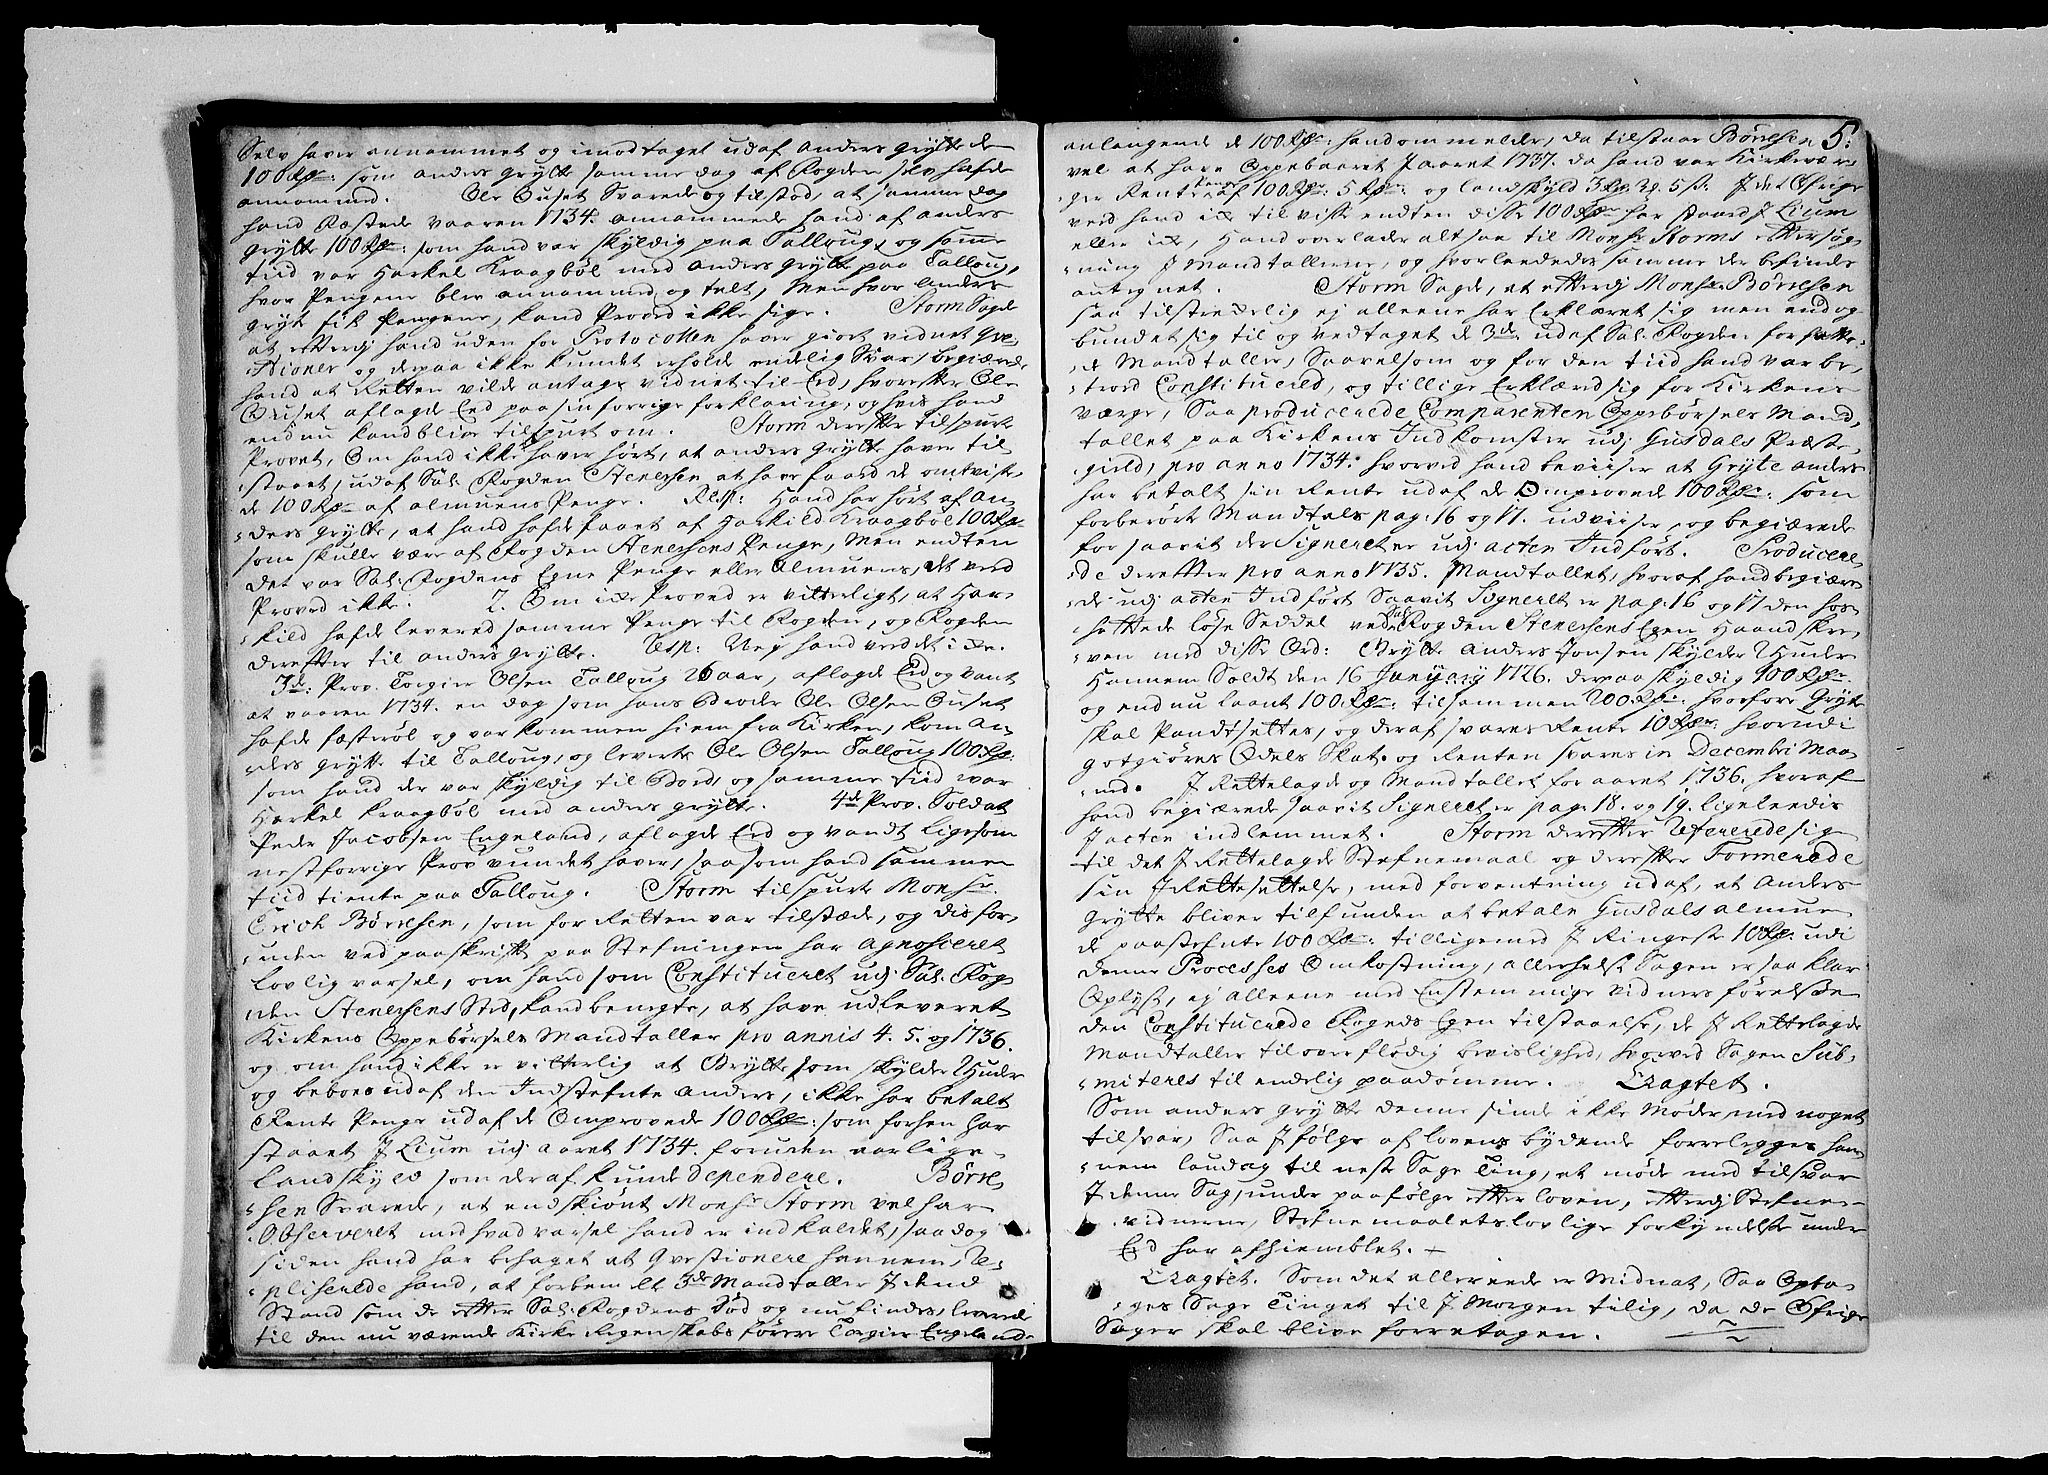 Selv haver annammet og imodtaget udaf Anders Grytte de
100 Rdr: som Anders Grytte samme dag af Fogden selv hafde
annammed. Ole Ouset Svarede og tilstod, at samme dag
hand Fæstede vaaren 1734. annammede hand af Anders
Grytte 100 Rdr: som hand var skyldig paa Talloug, og samme
tiid var Harkel Kraagbøl med Anders Grytte paa Talloug,
hvor Pengene blev annammed og talt, Men hvor Anders
Gryt fik Pengene, kand Proved ikke sige. Storm Sagde
at efterdj hand uden for Protocollen haver giort vidnet Qve-
stioner og derpaa ikke kundet erholde endelig Svar, begiærede
hand at Retten vilde antage vidnet til Eed, hvorefter Ole
Ouset aflagde Eed paa sin forrige forklaring, og hvis hand
endnu kand blive tilspurt om. Storm derefter tilspurte
Provet, Om hand ikke haver hørt, at Anders Grytte haver til-
staaet, udaf Sal: Fogden Stenersen at have faaed de omtviste-
de 100 Rdr af almuens Penge. Resp: Hand har hørt af An-
ders Grytte, at hand hafde faaet af Harkild Kraagbøl 100 Rdr
som skulle være af Fogden Stenersens Penge, Men endten
det var Sal: Fogdens Egne Penge eller Almuens, det veed
Proved ikke. 2. Om icke Proved er vitterligt, at Har-
kild hafde levered samme Penge til Fogden, og Fogden
derefter til Anders Grytte. Resp: Nej hand veed det icke.
3de: Prov. Torgier Olsen Talloug 26 aar, aflagde Eed og vant
at vaaren 1734. en dag som hans Broder Ole Olsen Ouset
hafde fæsterøl og var kommen hiem fra Kirken, kom An-
ders Grytte til Talloug, og leverte Ole Olsen Talloug 100 Rdr:
som hand der var skyldig til Bords og samme tiid var
Harkel Kraagbøl med Anders Grytte. 4de Prov. Soldat
Peder Jacobsen Engeland, aflagde Eed og vandt ligesom
nestforrige Prov vundet haver, saasom hand sammen
tiid tiente paa Talloug. Storm tilspurte Monsr.
Erich Børresen, som for Retten var tilstæde, og dis for-
uden ved paaskrift paa Stefningen har agnosceret
lovlig varsel, om hand som Constitueret udj Sal. Fog-
den Stenersens Sted, kand benegte, at have udleveret
Kirkens Oppebørsels Mandtaller pro annis 4. 5. og 1736.
og om hand ikke er vitterlig at Grytte, som skylder 1 Huder
og beboes udaf den Indstefnte Anders, ikke har betalt
Rente Penge udaf de Omprovede 100 Rdr: som forhen har
staaet J Lium udj aaret 1734. foruden aarlige
Landskyld som deraf kunde dependere. Børre-
sen Svarede, at endskiønt Monsr Storm vel har
Observeret med hvad varsel hand er indkaldet, saa dog
siden hand har behaget at Qvestionere hannem, Re-
pliserede hand, at forbemelte 3de Mandtaller J dend
Stand som de efter Sal: Fogdens Død og nu findes, leverede
til den nu værende Kirke Regenskabsfører Torgier Engeland.
5.
anlangende de 100 Rdr: hand ommelder, da tilstaar Børresen
vel at have Oppebaaret J aaret 1737. da hand var Kirkevær-
ger Rente Penge af 100 Rdr: 5 Rdr: og landskyld 3 Rdr 2 q. 5 ß: J det Øfrige
veed hand icke til visse endten disse 100 Rdr har staaed J Lium
eller icke, Hand overlader altsaa til Monsr Storms eftersøg-
ning J Mandtallerne, og hvorleededes samme der befindes
antegnet. Storm Sagde, at efterdj Monsr Børresen
saa tilstreckelig ej alleene har Erklæret sig men endog
bundet sig til og vedtaget de 3de udaf Sal: Fogden forfatte-
de Mandtaller, Saavelsom og for den tiid hand var be-
troed Constitucered, og tillige Erklæred sig for Kirkens
værge, Saa producerede Comparenten Oppebørsels Mand-
tallet paa Kirkens Indkomster udj Gusdals Præste-
gield, pro anno 1734. hvorved hand beviiser at Gryte Anders
har betalt sin Rente udaf de Omprovede 100 Rdr: som
forberørte Mandtals pag: 16 og 17. udviiser, og begiærede
for saavit der Signeret er udj acten Indført. Producere-
de derefter pro anno 1735. Mandtallet, hvoraf hand begiære-
de udj acten Indført Saavit Signeret er pag: 16 og 17 den hos-
heftede løse Seddel ved Sal: Fogden Stenersens Egen Haand skre-
ven med disse Ord: Grytte Anders Jonsen skylder 1 Huder
Hannem Soldt den 16 January 1726. derpaa skyldig 100 Rdr.
og endnu laant 100 Rdr: tilsammen 200 Rdr: hvorfore Gryte
skal Pandtsettes, og deraf svares Rente 10 Rdr: hvorudi
Gotgiøres Odels Skat. og Renten svares in Decembri Maa-
ned. J Rettelagde og Mandtallet for aaret 1736. hvoraf
hand begiærede saavit Signeret er pag: 18. og 19. ligeleedis
J acten indlemmet. Storm derefter Refererede sig
til det J Rettelagde Stefnemaal og derefter Formerede
sin J Rettesettelse, med forventning udaf, at Anders
Grytte bliver tilfunden at betale Gusdals almue
de paastefnte 100 Rdr: tilligemed J Ringeste 10 Rdr: udi
denne Processes Omkostning, allerhelst Sagen er saa klar
Oplyst, ej alleene med Enstemmige Vidners førelse
den Constitucerede Fogeds Egen tilstaaelse, de J Rettelagde
Mandtaller til overflødig bevislighed, hvorved Sagen Sub-
miteres til endelig paadømme. Eragtet.
Som Anders Grytte denne sinde ikke Møder med noget
tilsvar, Saa J følge af lovens bydende forrelegges han-
nem laudag til neste Sage Ting, at møde med tilsvar
J denne Sag, under paafølge efter loven, efterdj Stefne-
vidnerne, Stefnemaalets lovlige forkyndelse under
Eed har afhiemblet.
Eragtet. Som det allereede er Midnat, Saa Opta-
ges Sage Tinget til J Morgen tilig, da de Øfrige
Sager skal blive forretagen.